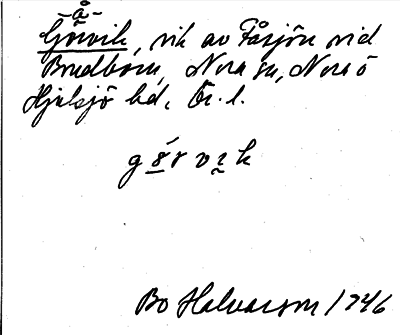 -å-
Görvik, vik av Fåsjön vid
Bredborn, Nora sn, Nora o
Hjulsjö hd, Ör. l.
Bo Halvarson 1946